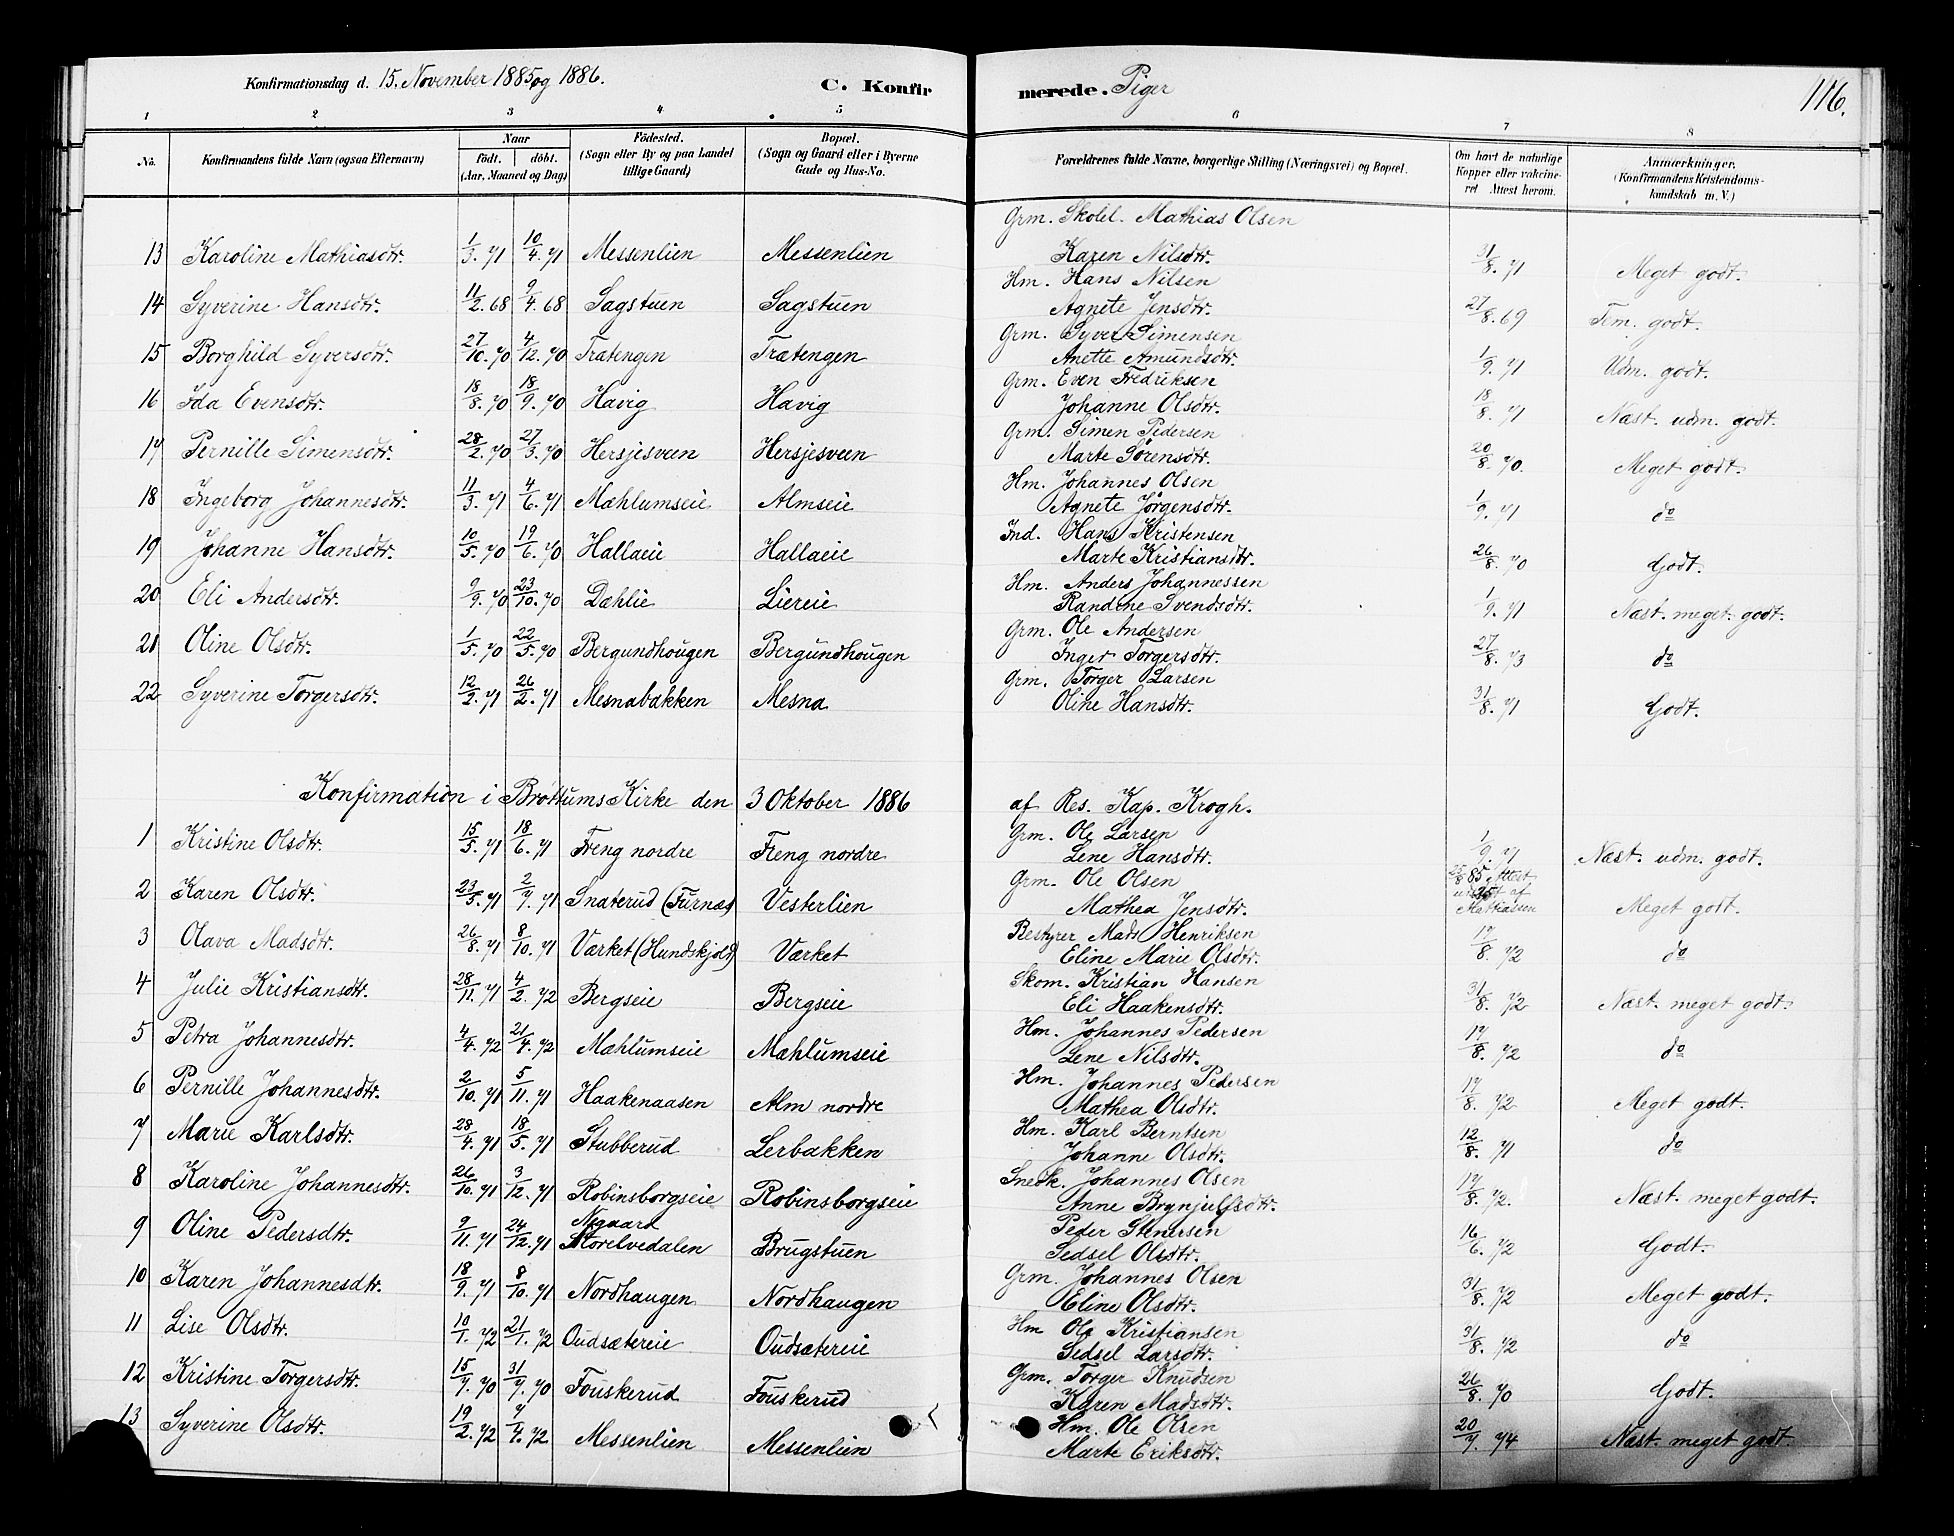 Konfirmationsdag d. 15. November 1885 og 1886.
C. Konfirmerede. Piger
116.
1 2 3 4 5 6 7 8
No. | Konfirmandens fulde Navn (ogsaa Efternavn) | Naar födt. döbt. (Aar, Maaned og Dag) | Födested. (Sogn eller By og paa Landet tillige Gaard) | Bopæl. (Sogn og Gaard eller i Byerne Gade og Hus-No. | Forældrenes fulde Navne, borgerlige Stilling (Næringsvei) og Bopæl. | Om havt de naturlige Kopper eller vakcineret Attest herom. | Anmærkninger. (Konfirmandens Kristendomskundskab m. V.)
13 Karoline Mathiasdtr. 1/3. 71 10/4. 71 Messenlien Messenlien Grm. Skolel. Mathias Olsen
Karen Nilsdtr. 31/8. 71 Meget godt.
14 Syverine Hansdtr. 11/2. 68 9/4. 68 Sagstuen Sagstuen Hm. Hans Nilsen
Agnete Jensdtr. 27/8. 69 Tem. godt.
15 Borghild Syversdtr. 27/10. 70 4/12. 70 Trætengen Trætengen Grm. Syver Simensen
Anette Amundsdtr. 1/9. 71 Udm. godt.
16 Ida Evensdtr. 18/8. 70 18/9. 70 Havig Havig Grm. Even Fredriksen
Johanne Olsdtr. 18/8. 71 Næst. udm. godt.
17 Pernille Simensdtr. 28/2. 70 27/3. 70 Hersjesveen Hersjesveen Grm. Simen Pedersen
Marte Sörensdtr. 20/8. 70. Meget godt.
18 Ingeborg Johannesdtr. 11/3. 71 4/6. 71 Mæhlumseie Almseie Hm. Johannes Olsen
Agnete Jörgensdtr. 1/9. 71 do
19 Johanne Hansdtr. 10/5. 70 19/6. 70 Hallaeie Hallaeie Ind. Hans Kristensen
Marte Kristiansdtr. 26/8. 70 Godt.
20 Eli Andersdtr. 9/9. 70 23/10. 70 Dæhlie Liereie Hm. Anders Johannessen
Randine Svendsdtr. 1/9. 71 Næst. meget godt.
21 Oline Olsdtr. 1/5. 70 22/5. 70 Bergundhougen Bergundhougen Grm. Ole Andersen
Inger Torgersdtr. 27/8. 73 do
22 Syverine Torgersdtr. 12/2. 71 26/2. 71 Mesnabakken Mesna Grm. Torger Larsen
Oline Hansdtr. 31/8. 71 Godt.
Konfirmation i Bröttums Kirke den 3 Oktober 1886 af Res. Kap. Krogh.
1 Kristine Olsdtr. 15/5. 71 18/6. 71 Freng nordre Freng nordre Grm. Ole Larsen
Lene Hansdtr. 1/9. 71 Næst. udm. godt.
2 Karen Olsdtr. 23/5. 71 2/7. 71 Snaterud (Furnæs) Vesterlien Grm. Ole Olsen
Mathea Jensdtr. 25/8 85, Attest af Mattiassen Meget godt.
3 Olava Madsdtr. 26/8. 71 8/10. 71 Værket (Hundskjold) Værket Bestyrer Mads Henriksen
Eline Marie Olsdtr. 17/8. 72 do
4 Julie Kristiansdtr. 28/11. 71 4/2. 72 Bergseie Bergseie Skom. Kristian Hansen
Eli Haakensdtr. 31/8. 72 Næst. meget godt.
5 Petra Johannesdtr. 4/4. 72 21/4. 72 Mæhlumseie Mæhlumseie Hm. Johannes Pedersen
Lene Nilsdtr. 17/8. 72 do
6 Pernille Johannesdtr. 2/10. 71 5/11. 71 Haakenaasen Alm nordre Hm. Johannes Pedersen
Mathea Olsdtr. 17/8. 72 Meget godt.
7 Marie Karlsdtr. 28/4. 71 18/5. 71 Stubberud Lerbakken Hm. Karl Berntsen
Johanne Olsdtr. 12/8. 71 do
8 Karoline Johannesdtr. 26/10. 71 3/12. 71 Robinsborgseie Robinsborgseie Snedk. Johannes Olsen
Anne Brynjulfsdtr. 17/8. 72. Næst. meget godt.
9 Oline Pedersdtr. 9/11. 71 24/12. 71 Nygaard Storelvedalen Brugstuen Peder Stenersen
Sedsel Olsdtr. 16/6. 72 Godt.
10 Karen Johannesdtr. 18/9. 71 8/10. 71 Nordhaugen Nordhaugen Grm. Johannes Olsen
Eline Olsdtr. 31/8. 72 Meget godt.
11 Lise Olsdtr. 10/1. 72 21/1. 72 Oudsætereie Oudsætereie Hm Ole Kristiansen
Sedsel Larsdtr. 31/8. 72 do
12 Kristine Torgersdtr. 15/7. 70 31/7. 70 Fouskerud Fouskerud Grm. Torger Knudsen
Karen Madsdtr. 26/8. 70 Godt.
13 Syverine Olsdtr. 19/2. 72 7/4. 72 Messenlien Messenlien Hm. Ole Olsen
Marte Eriksdtr. 20/7. 74 Næst. meget godt.